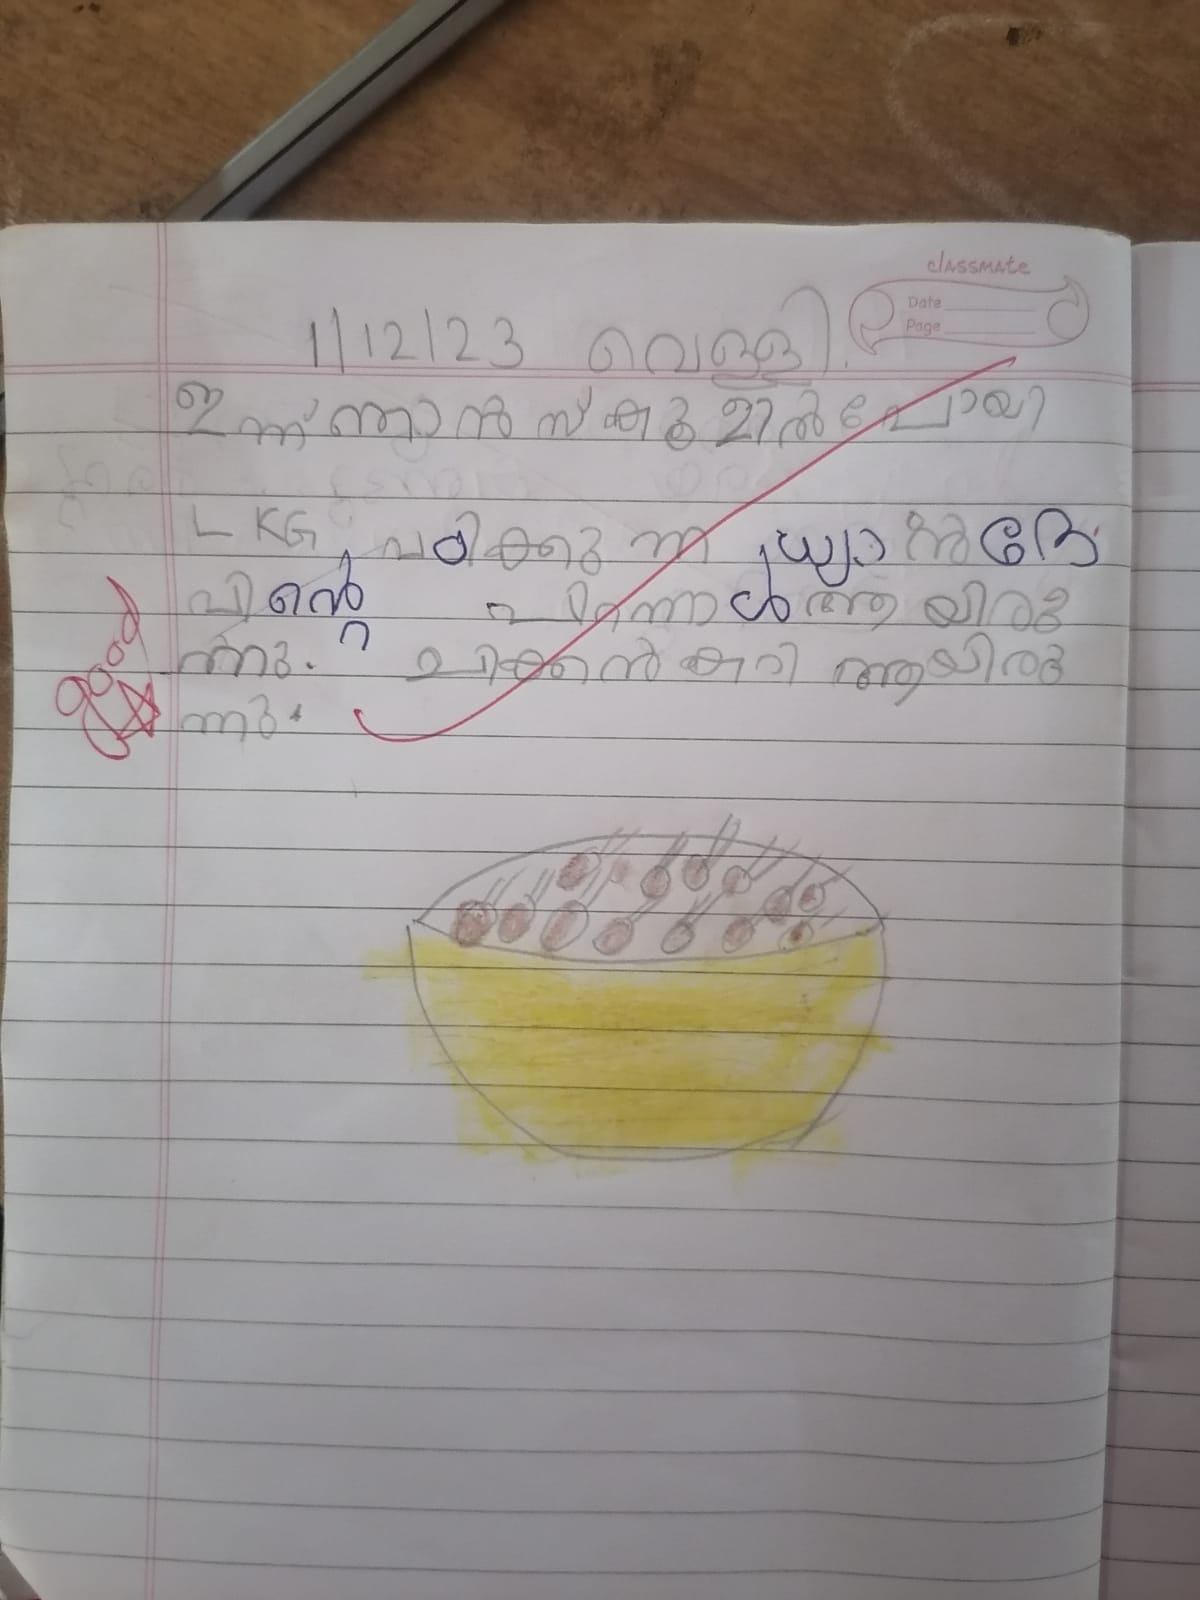 classmate
Date
Page
1/12/23 വെള്ളി.
ഇന്ന് ഞാൻ സ്കൂളിൽ പോയി
LKG പഠിക്കുന്ന
വിന്റെ പിറന്നാൾ ആയിരു
ന്നു. ചിക്കൻ കറി ആയിരു
ന്നു.
good